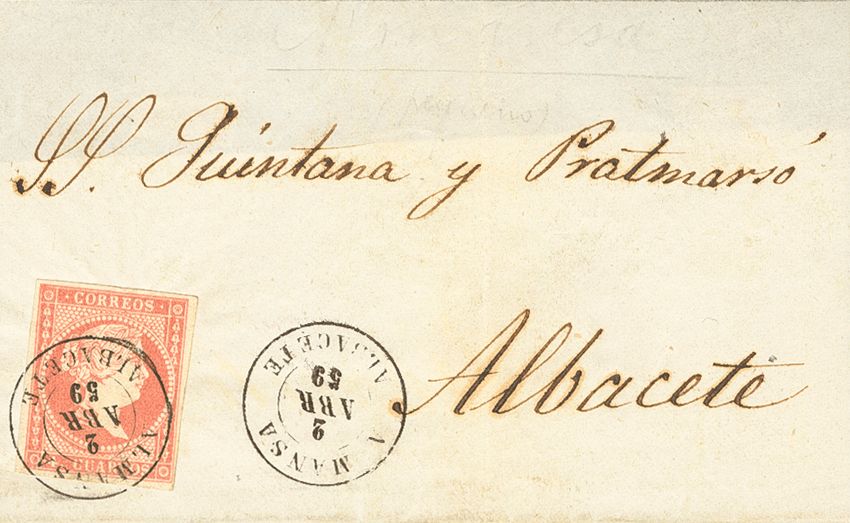 SS. Quintana y Pratmarsó
Albacete
CORREOS
CUART
ALMANSA
2
ABR
59
ALBACETE
A MANSA
2
ABR
59
ALBACETE